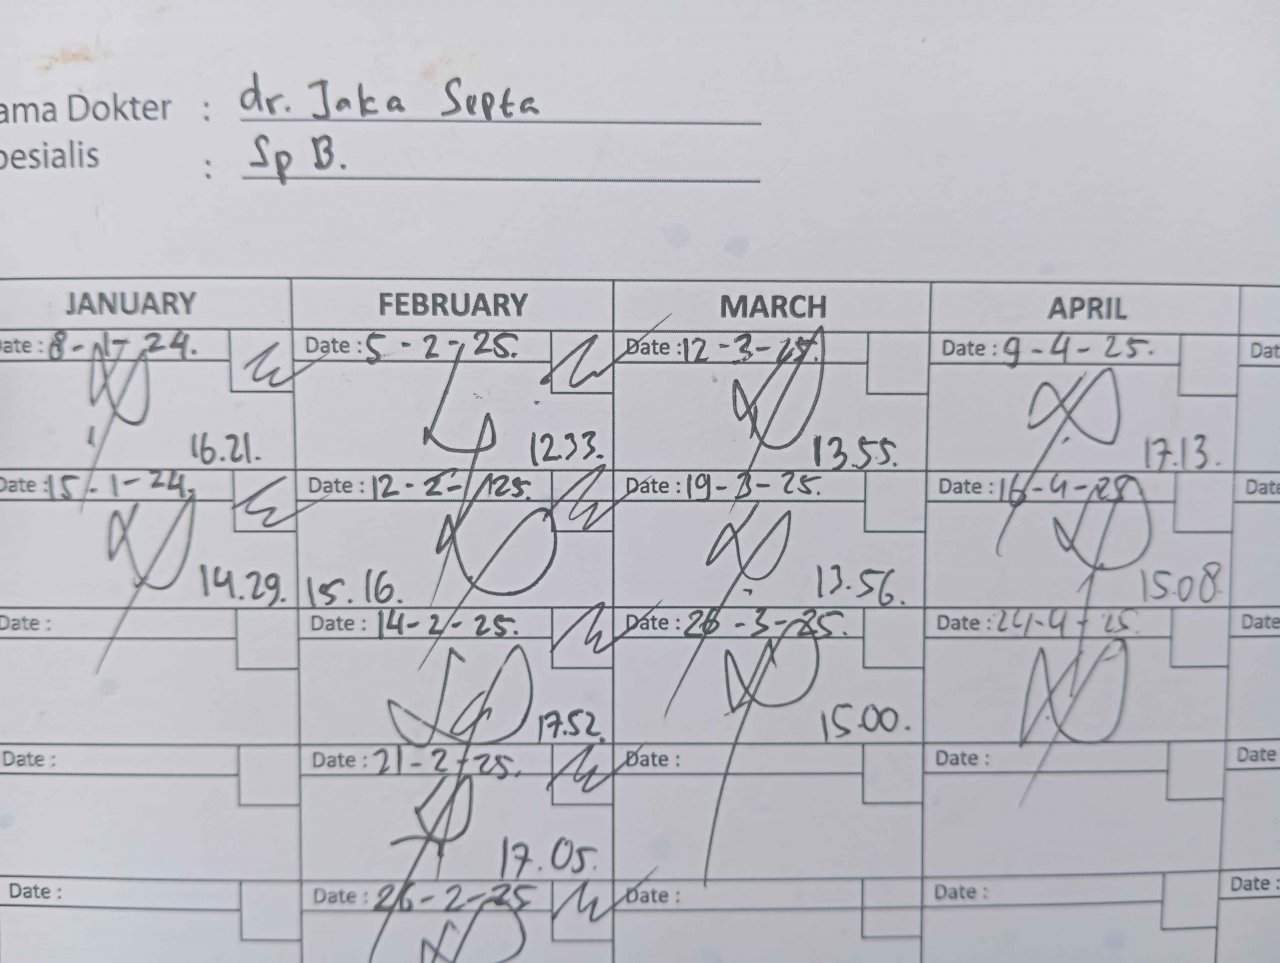 ama Dokter : dr. Jaka Septa
pesialis : Sp B.
JANUARY FEBRUARY MARCH APRIL
ate : 8-1-24. Date : 5-2-25. Date : 12-3-25. Date : 9-4-25. Dat
16.21. 12.33. 13.55. 17.13.
Date : 15-1-24. Date : 12-2-25. Date : 19-3-25. Date : 16-4-25 Date
14.29. 15.16. 13.56. 15.08
Date : Date : 14-2-25. Date : 26-3-25. Date : 24-4-25. Date
17.52. 15.00.
Date : Date : 21-2-25. Date : Date : Date
17.05.
Date : Date : 26-2-25 Date : Date : Date :